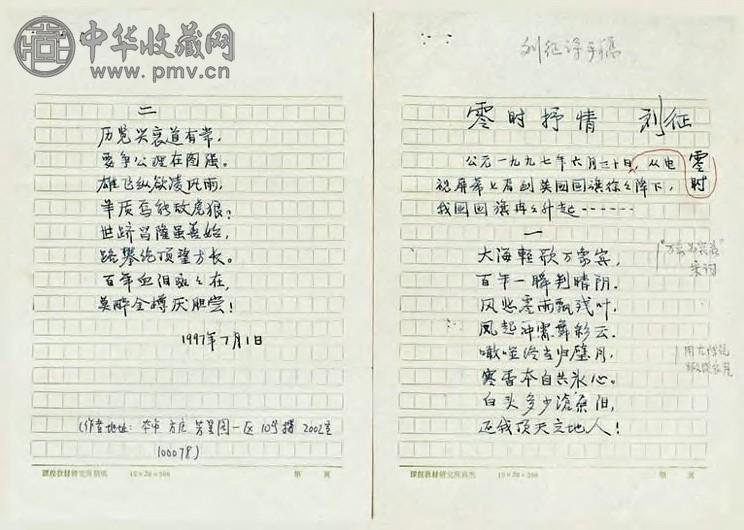 中华收藏网
www.pmv.cn
刘征诗手稿
零时抒情 刘征
公元一九九七年六月三十日，零时从电
视屏幕上看到英国国旗徐々降下，
我国国旗冉々升起------
一
大海轻歌万象宾，
"万象为宾客"
宋词
百年一瞬判晴阴。
风悲零雨飘残叶，
凤起冲霄舞彩云。
终当归璧月，
寒香本自共冰心。
白头多少沧桑泪，
还我顶天立地人！
课程教材研究所稿纸 15×20=300 第 页
二
历览兴衰道有常，
要争公理在图强。
雄飞纵欲凌风雨，
羊质焉能敌虎狼？
世跻昌隆虽善始，
路攀绝顶望方长。
百年血泪 在，
莫醉金樽厌胆尝！
1997年7月1日
（作者地址：本市方庄芳星园一区10号楼2002室
100078）
课程教材研究所稿纸 15×20=300 第 页